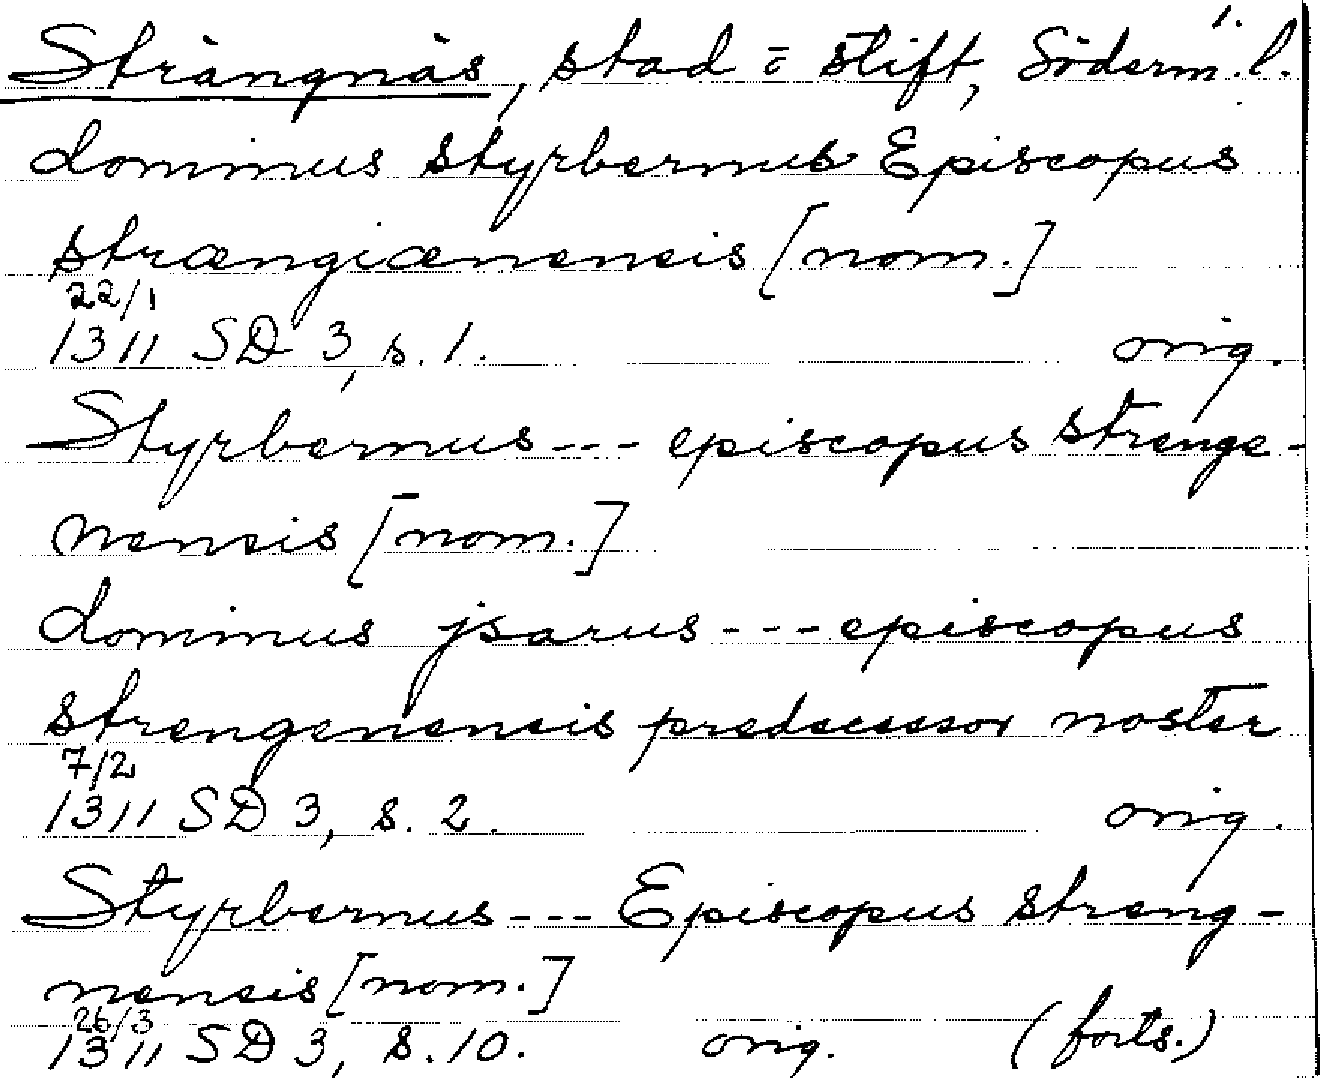 1.
Strängnäs, stad o stift, Söderm. l.
dominus styrbernus Episcopus
strængiænensis [nom.]
22/1
1311 SD 3, s. 1. orig.
Styrbernus --- episcopus strenge-
nensis [nom.]
dominus jsarus --- episcopus
strengenensis predecessor noster
7/2
1311 SD 3, s. 2. orig.
Styrbernus --- Episcopus streng-
nensis [nom.]
26/3
1311 SD 3, s. 10. orig. (forts.)